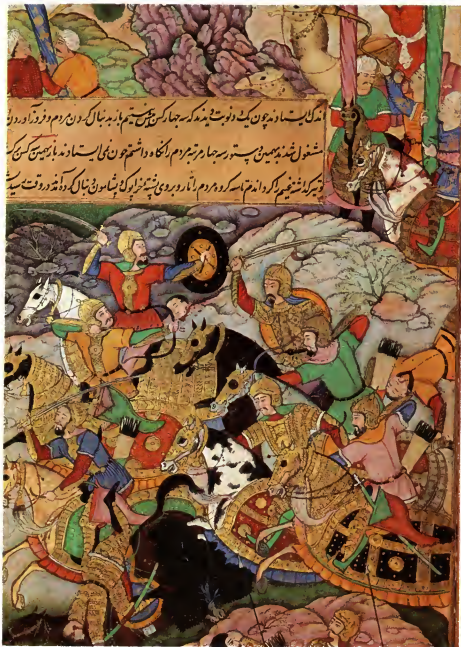 اندک ایستادند چون یک دو نوبت دیدند که سه چهار کس هستیم باز بدنبال کردن مردم و فرود آوردن
مشغول شدند بهمین دستور سه چهار مرتبه مردم را نگاه داشتم چون نمی ایستادند باز بهمین سه کس
غنیم را گرداندم تا سه کروه مردم را تا روبروی پشته خرابوک و پشامون دنبال کرده آمد در وقت